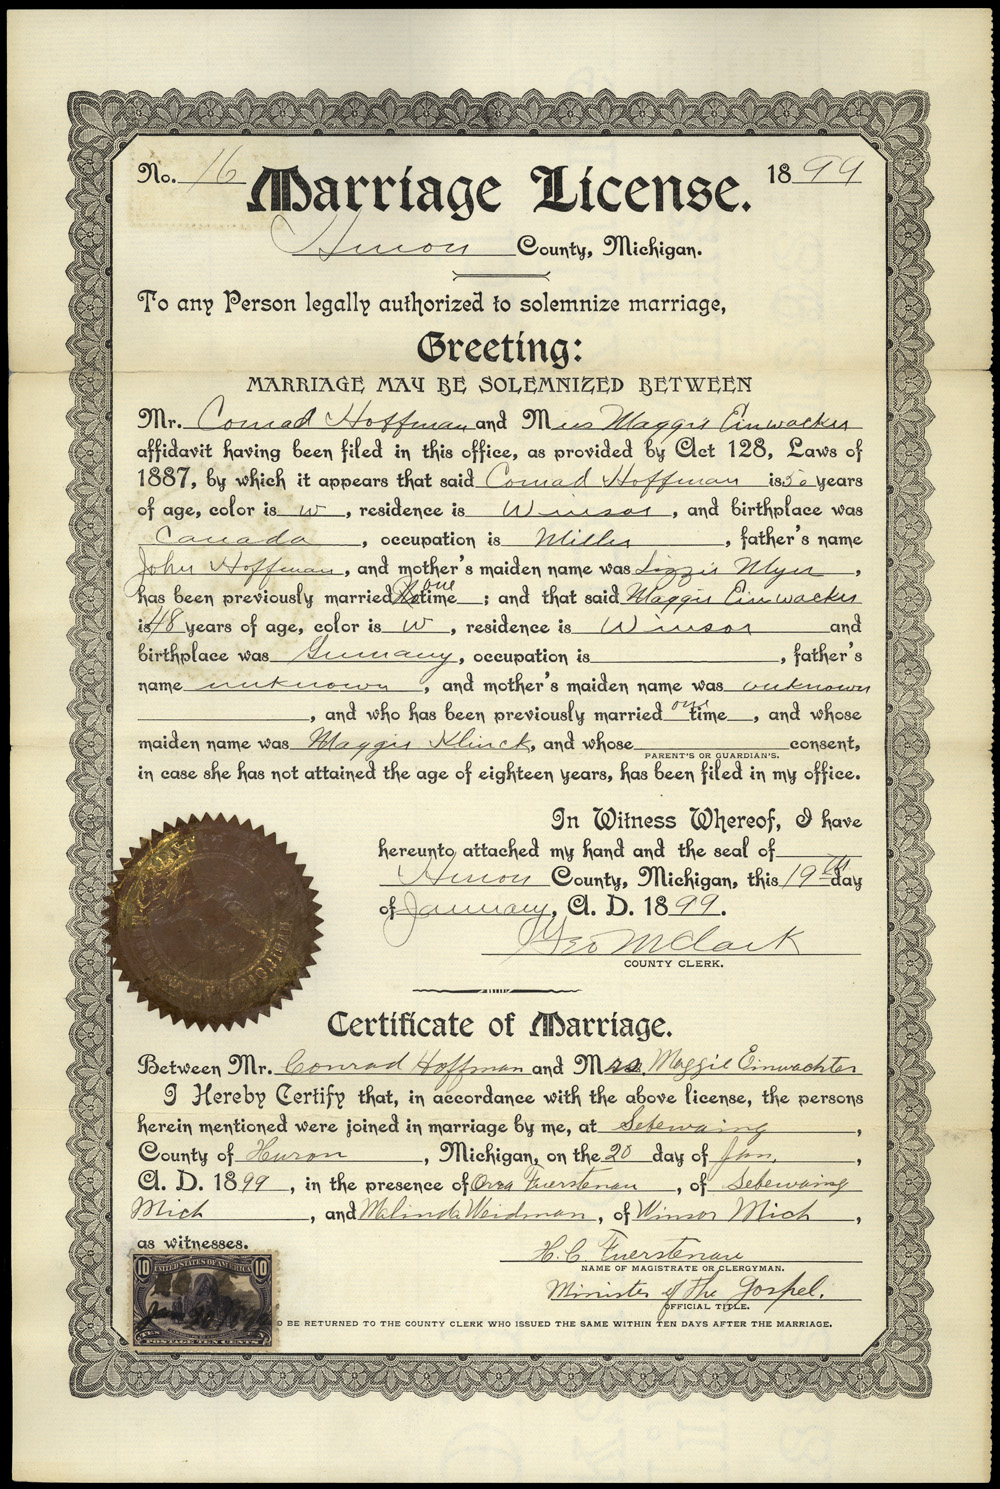 No. 16 Marriage License. 1899
Huron County, Michigan.
To any Person legally authorized to solemnize marriage,
Greeting:
MARRIAGE MAY BE SOLEMNIZED BETWEEN
Mr. Conrad Hoffman and Miss Maggie Einwacker
affidavit having been filed in this office, as provided by Act 128, Laws of
1887, by which it appears that said Conrad Hoffman is 50 years
of age, color is W, residence is Winsor, and birthplace was
Canada, occupation is Miller, father's name
John Hoffman, and mother's maiden name was Lizzie Myer,
has been previously married one time; and that said Maggie Einwacker
is 48 years of age, color is W, residence is Winsor and
birthplace was Germany, occupation is , father's
name unknown, and mother's maiden name was unknown
, and who has been previously married one time, and whose
maiden name was Maggie Klinck, and whose consent,
PARENT'S OR GUARDIAN'S.
in case she has not attained the age of eighteen years, has been filed in my office.
In Witness Whereof, I have
hereunto attached my hand and the seal of
Huron County, Michigan, this 19th day
of January, A. D. 1899.
Geo M Clark
COUNTY CLERK.
Certificate of Marriage.
Between Mr. Conrad Hoffman and Mrs. Maggie Einwachter
I Hereby Certify that, in accordance with the above license, the persons
herein mentioned were joined in marriage by me, at Sebewaing,
County of Huron, Michigan, on the 20 day of Jan.,
A. D. 1899, in the presence of Orra Fuerstenau, of Sebewaing
Mich, and Malinda Weidman, of Winsor Mich,
as witnesses.
H. C. Fuerstenau
NAME OF MAGISTRATE OR CLERGYMAN.
Minister of the Gospel.
OFFICIAL TITLE.
O BE RETURNED TO THE COUNTY CLERK WHO ISSUED THE SAME WITHIN TEN DAYS AFTER THE MARRIAGE.
10 UNITED STATES OF AMERICA 10
POSTAGE TEN CENTS